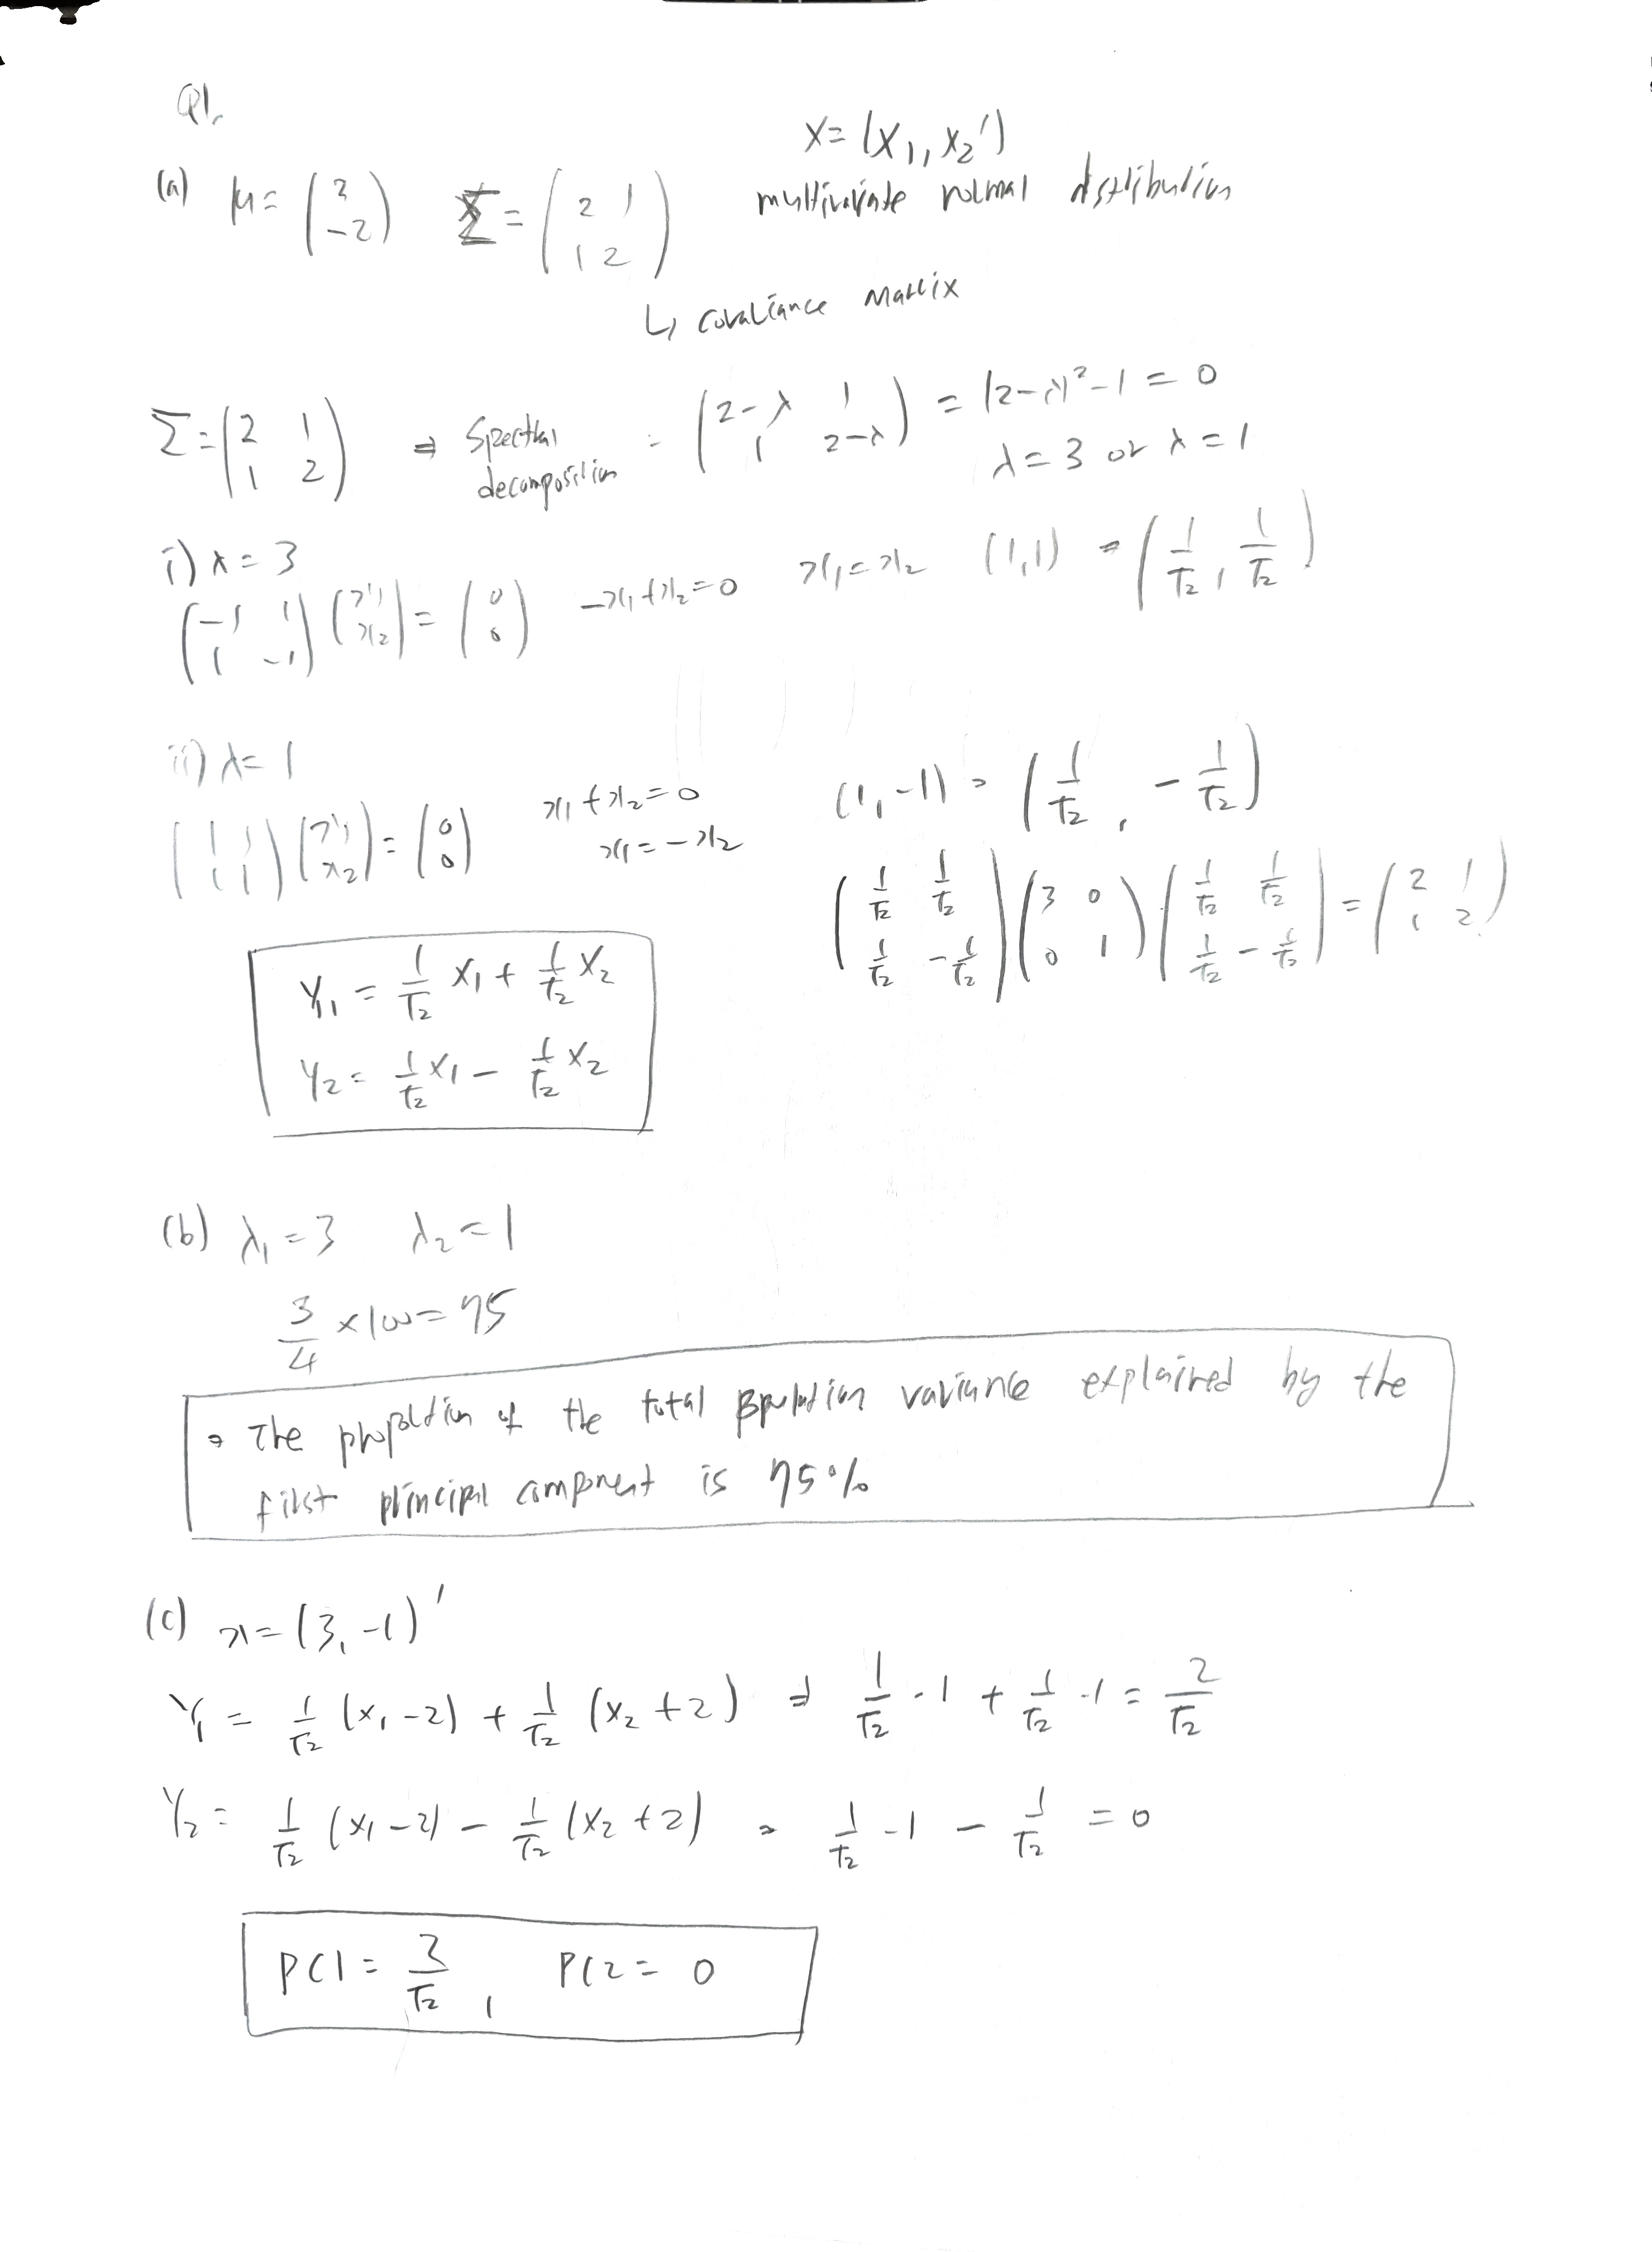 Q1.
X = (X₁, X₂')
(a) μ = (2 -2) Σ = (2 1 1 2) multivariate normal distribution
↳ covariance matrix
Σ = (2 1 1 2) ⇒ Spectral decomposition = (2-λ 1 1 2-λ) = (2-λ)² - 1 = 0
λ = 3 or λ = 1
i) λ = 3
(-1 1 1 -1)(x₁ x₂) = (0 0) -x₁+x₂=0 x₁=x₂ (1,1) ⇒ (1/√2, 1/√2)
ii) λ = 1
(1 1 1 1)(x₁ x₂) = (0 0) x₁+x₂=0 x₁=-x₂ (1,-1) ⇒ (1/√2, -1/√2)
(1/√2 1/√2 1/√2 -1/√2)(3 0 0 1)(1/√2 1/√2 1/√2 -1/√2) = (2 1 1 2)
Y₁ = 1/√2 X₁ + 1/√2 X₂
Y₂ = 1/√2 X₁ - 1/√2 X₂
(b) λ₁ = 3 λ₂ = 1
3/4 × 100 = 75
⇒ The proportion of the total population variance explained by the
first principal component is 75%
(c) x = (3, -1)'
Y₁ = 1/√2 (X₁-2) + 1/√2 (X₂+2) ⇒ 1/√2 · 1 + 1/√2 · 1 = 2/√2
Y₂ = 1/√2 (X₁-2) - 1/√2 (X₂+2) ⇒ 1/√2 · 1 - 1/√2 = 0
PC1 = 2/√2, PC2 = 0